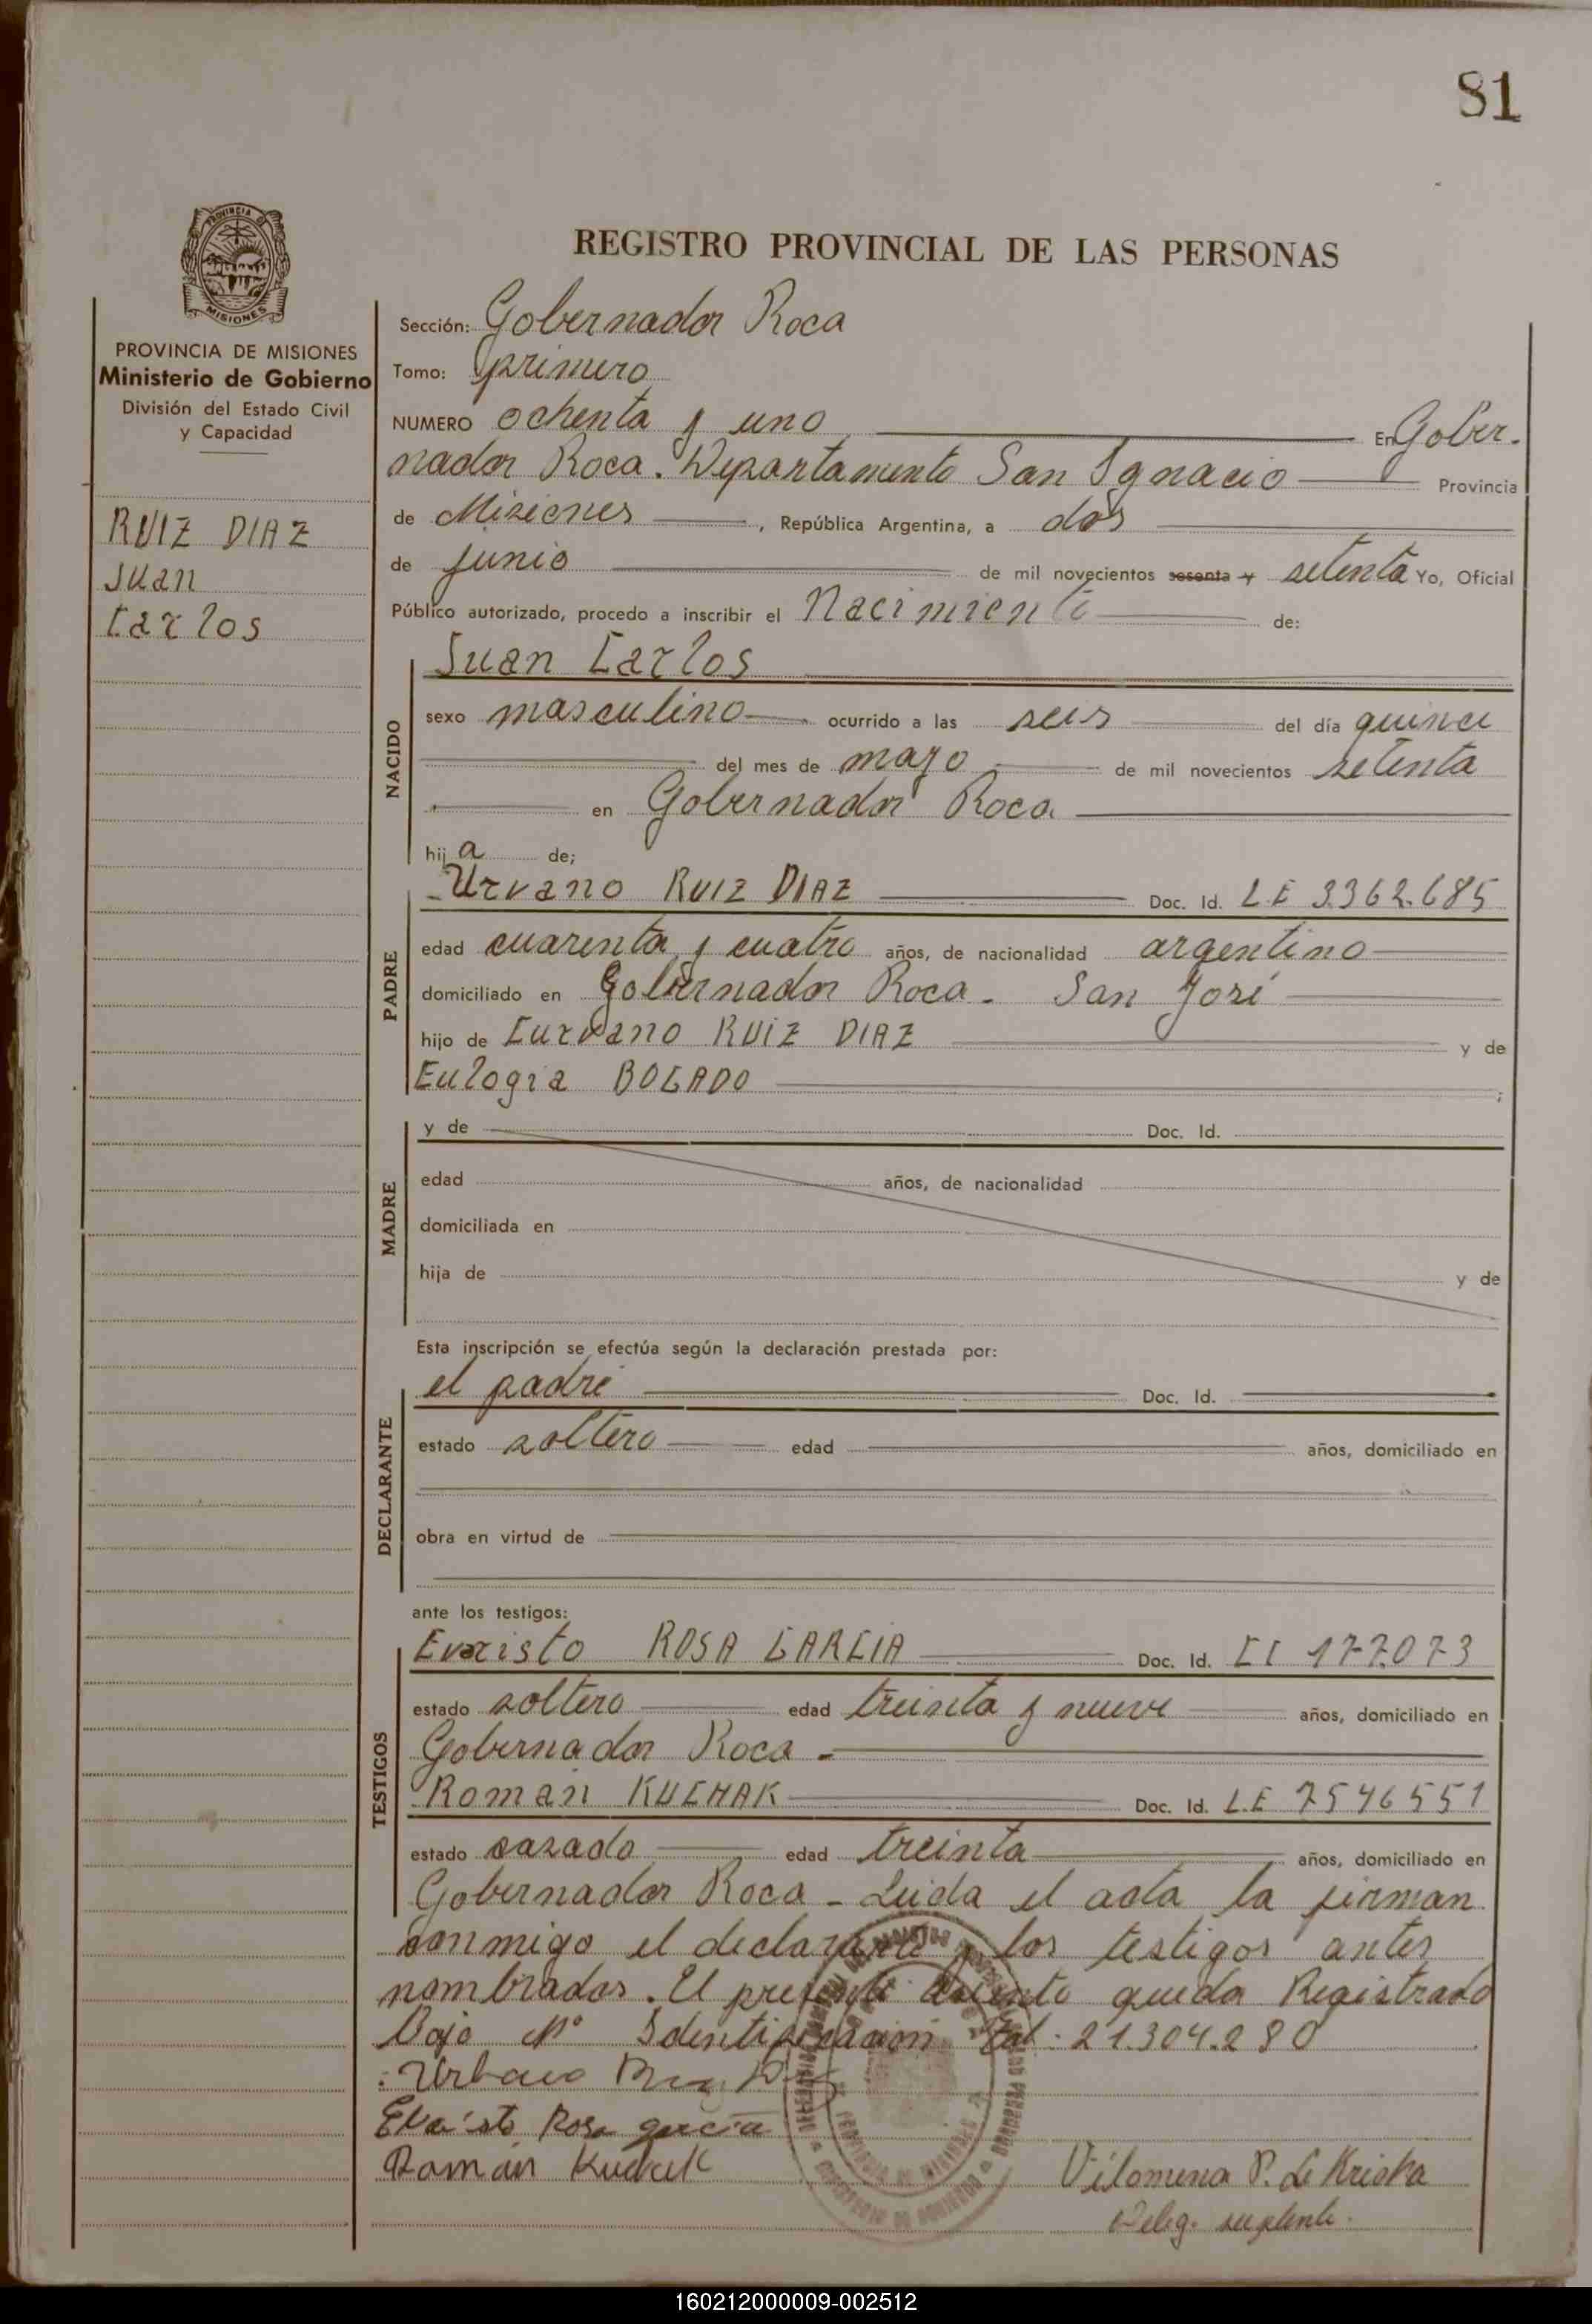 81
PROVINCIA DE
MISIONES
PROVINCIA DE MISIONES
Ministerio de Gobierno
División del Estado Civil
y Capacidad
RUIZ DIAZ
Juan
Carlos
REGISTRO PROVINCIAL DE LAS PERSONAS
Sección: Gobernador Roca
Tomo: primero
NUMERO ochenta y uno En Gober-
nador Roca. Departamento San Ignacio Provincia
de Misiones, República Argentina, a dos
de junio de mil novecientos sesenta y setenta Yo, Oficial
Público autorizado, procedo a inscribir el Nacimiento de:
NACIDO
Juan Carlos
sexo masculino ocurrido a las seis del día quince
del mes de mayo de mil novecientos setenta
en Gobernador Roca
hij a de;
PADRE
Urvano RUIZ DIAZ Doc. Id. LE 3.362.685
edad cuarenta y cuatro años, de nacionalidad argentino
domiciliado en Gobernador Roca - San José
hijo de Curvano RUIZ DIAZ y de
Eulogia BOGADO ;
MADRE
y de Doc. Id.
edad años, de nacionalidad
domiciliada en
hija de y de
Esta inscripción se efectúa según la declaración prestada por:
DECLARANTE
el padre Doc. Id.
estado soltero edad años, domiciliado en
obra en virtud de
ante los testigos:
TESTIGOS
Evaristo ROSA GARCIA Doc. Id. CI 177.073
estado soltero edad treinta y nueve años, domiciliado en
Gobernador Roca -
Román KUCHAK Doc. Id. L.E 7546551
estado casado edad treinta años, domiciliado en
Gobernador Roca - Leida el acta la firman
conmigo el declarante y los testigos antes
nombrados. El presente asiento queda Registrado
Bajo Nº Identificación 21.304.280
Urbano
Rosa garcia
Román
Vilomena P. de Kriska
Deleg. suplente.
160212000009-002512